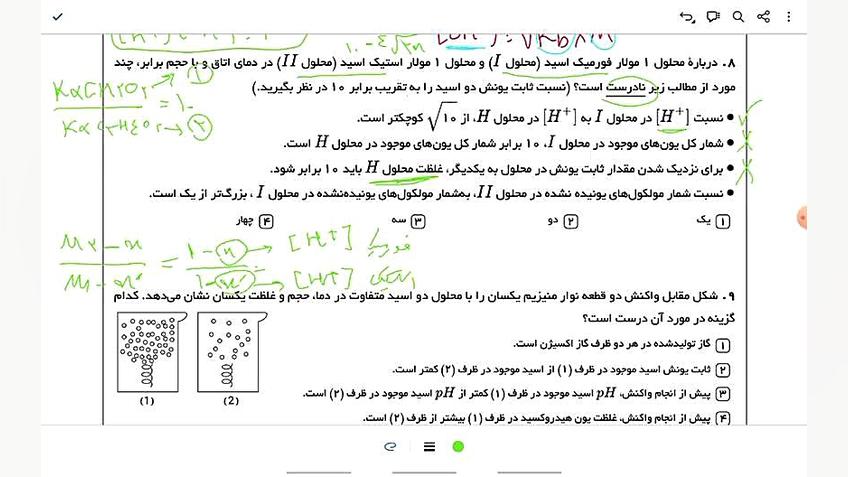 ۸. دربارهٔ محلول ۱ مولار فورمیک اسید (محلول I) و محلول ۱ مولار استیک اسید (محلول II) در دمای اتاق و با حجم برابر، چند
مورد از مطالب زیر نادرست است؟ (نسبت ثابت یونش دو اسید را به تقریب برابر ۱۰ در نظر بگیرید.)
• نسبت [H+] در محلول I به [H+] در محلول H، از √۱۰ کوچکتر است.
• شمار کل یون‌های موجود در محلول I، ۱۰ برابر شمار کل یون‌های موجود در محلول H است.
• برای نزدیک شدن مقدار ثابت یونش در محلول به یکدیگر، غلظت محلول H باید ۱۰ برابر شود.
• نسبت شمار مولکول‌های یونیده نشده در محلول II، به‌شمار مولکول‌های یونیده‌نشده در محلول I، بزرگ‌تر از یک است.
۱ یک ۲ دو ۳ سه ۴ چهار
۹. شکل مقابل واکنش دو قطعه نوار منیزیم یکسان را با محلول دو اسید متفاوت در دما، حجم و غلظت یکسان نشان می‌دهد. کدام
گزینه در مورد آن درست است؟
۱ گاز تولیدشده در هر دو ظرف گاز اکسیژن است.
۲ ثابت یونش اسید موجود در ظرف (۱) از اسید موجود در ظرف (۲) کمتر است.
۳ پیش از انجام واکنش، pH اسید موجود در ظرف (۱) کمتر از pH اسید موجود در ظرف (۲) است.
۴ پیش از انجام واکنش، غلظت یون هیدروکسید در ظرف (۱) بیشتر از ظرف (۲) است.
(1) (2)